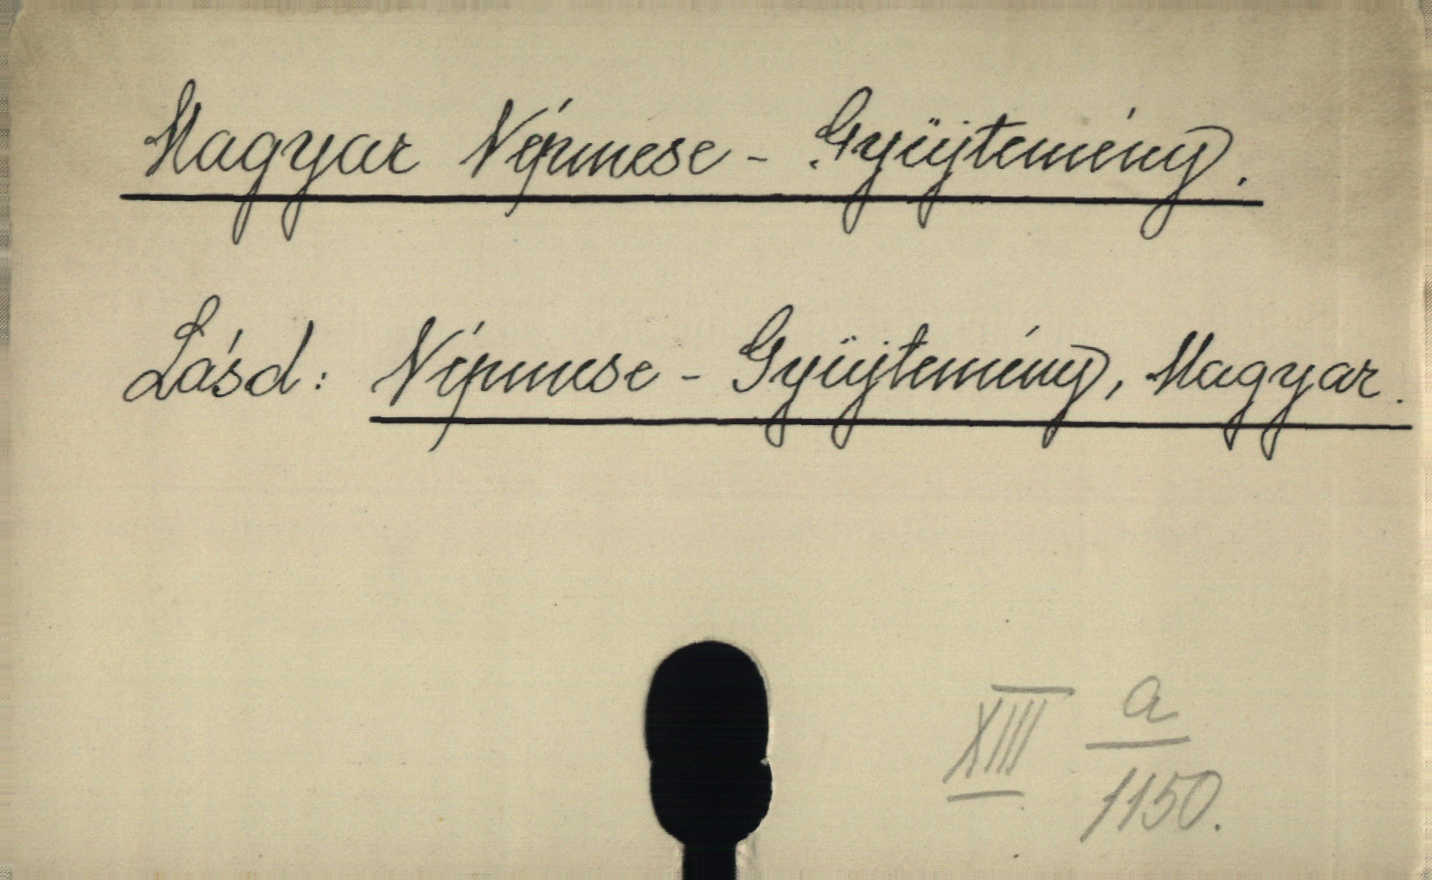 Magyar Népmese - Gyüjtemény.
Lásd: Népmese - Gyüjtemény, Magyar.
XIII a
1150.